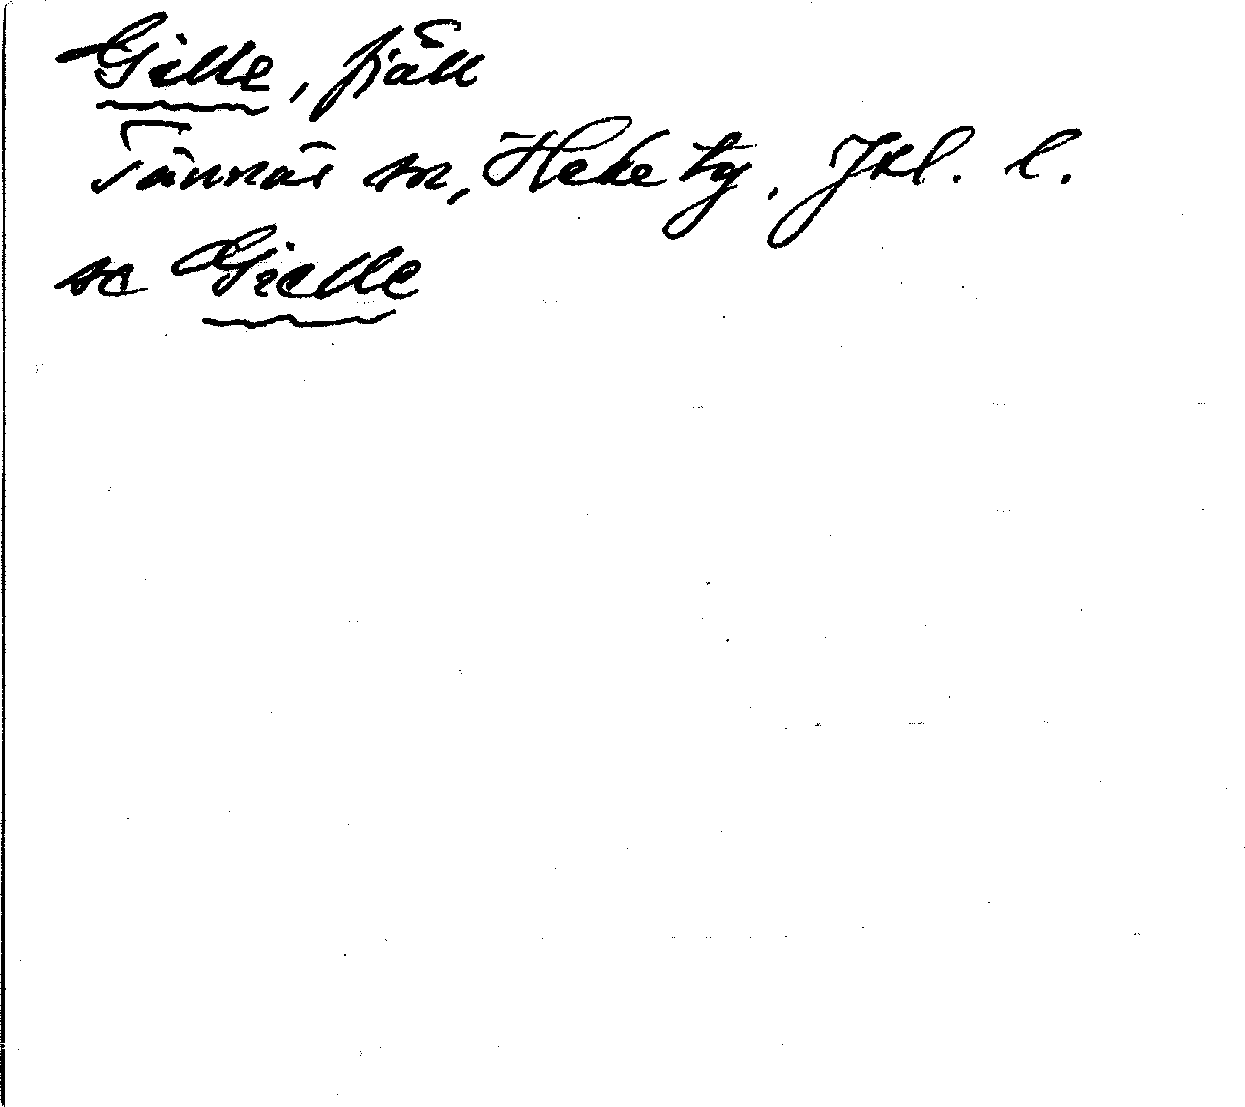 Gille, fjäll
Tännäs sn, Hede tg. Jtl. l.
se Gielle